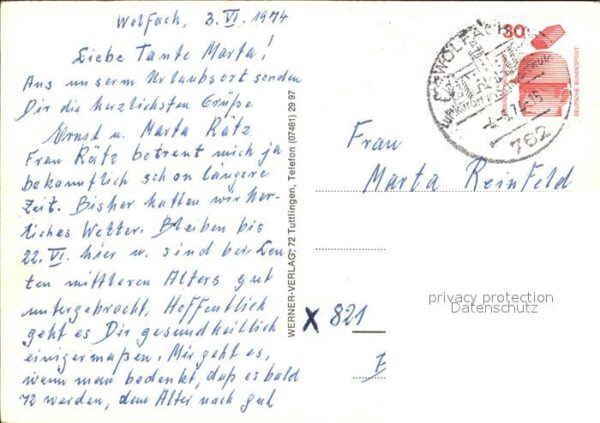 Wolfach, 3. VI. 1974
Liebe Tante Marta!
Aus unserm Urlaubsort senden
Dir die herzlichsten Grüße
Ernst u. Marta Rätz
Frau Rätz betreut mich ja
bekanntlich schon längere
Zeit. Bisher hatten wir herr-
liches Wetter. Bleiben bis
22. VI. hier u. sind bei Leu-
ten mittleren Alters gut
untergebracht. Hoffentlich
geht es Dir gesundheitlich
einigermaßen. Mir geht es,
wenn man bedenkt, daß es bald
72 werden, dem Alter nach gut
WERNER-VERLAG, 72 Tuttlingen, Telefon (07461) 29 97
WOLFACH
762
30
DEUTSCHE BUNDESPOST
Frau
Marta Reinfeld
privacy protection
Datenschutz
X 821